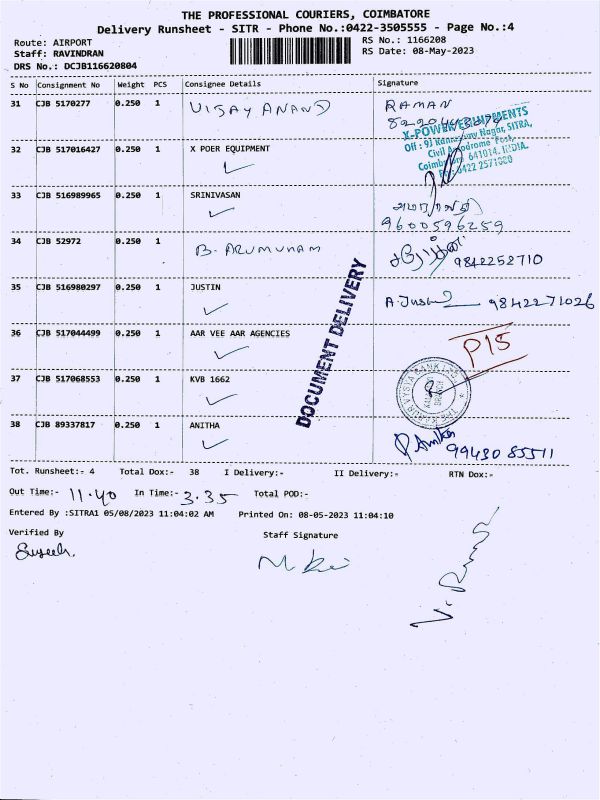 THE PROFESSIONAL COURIERS, COIMBATORE
Delivery Runsheet - SITR - Phone No.:0422-3505555 - Page No.:4
Route: AIRPORT
Staff: RAVINDRAN
DRS No.: DCJB116620804
RS No.: 1166208
RS Date: 08-May-2023
S No Consignment No Weight PCS Consignee Details Signature
31 CJB 5170277 0.250 1 VIJAY ANAND RAMAN
X-POWER EQUIPMENTS
Off : 9J Ramasamy Nagar, SITRA,
Civil Aerodrome Post,
Coimbatore 641014. INDIA.
0422 2571080
32 CJB 517016427 0.250 1 X POER EQUIPMENT
33 CJB 516989965 0.250 1 SRINIVASAN
9600596259
34 CJB 52972 0.250 1 B. ARUMUHAM 9842252710
35 CJB 516980297 0.250 1 JUSTIN A. Justin 9842271026
DOCUMENT DELIVERY
36 CJB 517044499 0.250 1 AAR VEE AAR AGENCIES P15
37 CJB 517068553 0.250 1 KVB 1662
38 CJB 89337817 0.250 1 ANITHA P. Anitha
99430 85511
Tot. Runsheet:- 4 Total Dox:- 38 I Delivery:- II Delivery:- RTN Dox:-
Out Time:- 11.40 In Time:- 3.35 Total POD:-
Entered By :SITRA1 05/08/2023 11:04:02 AM Printed On: 08-05-2023 11:04:10
Verified By Staff Signature